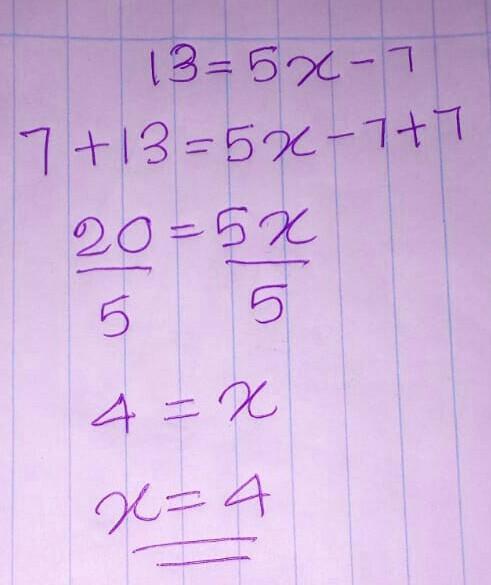 13 = 5x - 7
7 + 13 = 5x - 7 + 7
20 = 5x
5 5
4 = x
x = 4